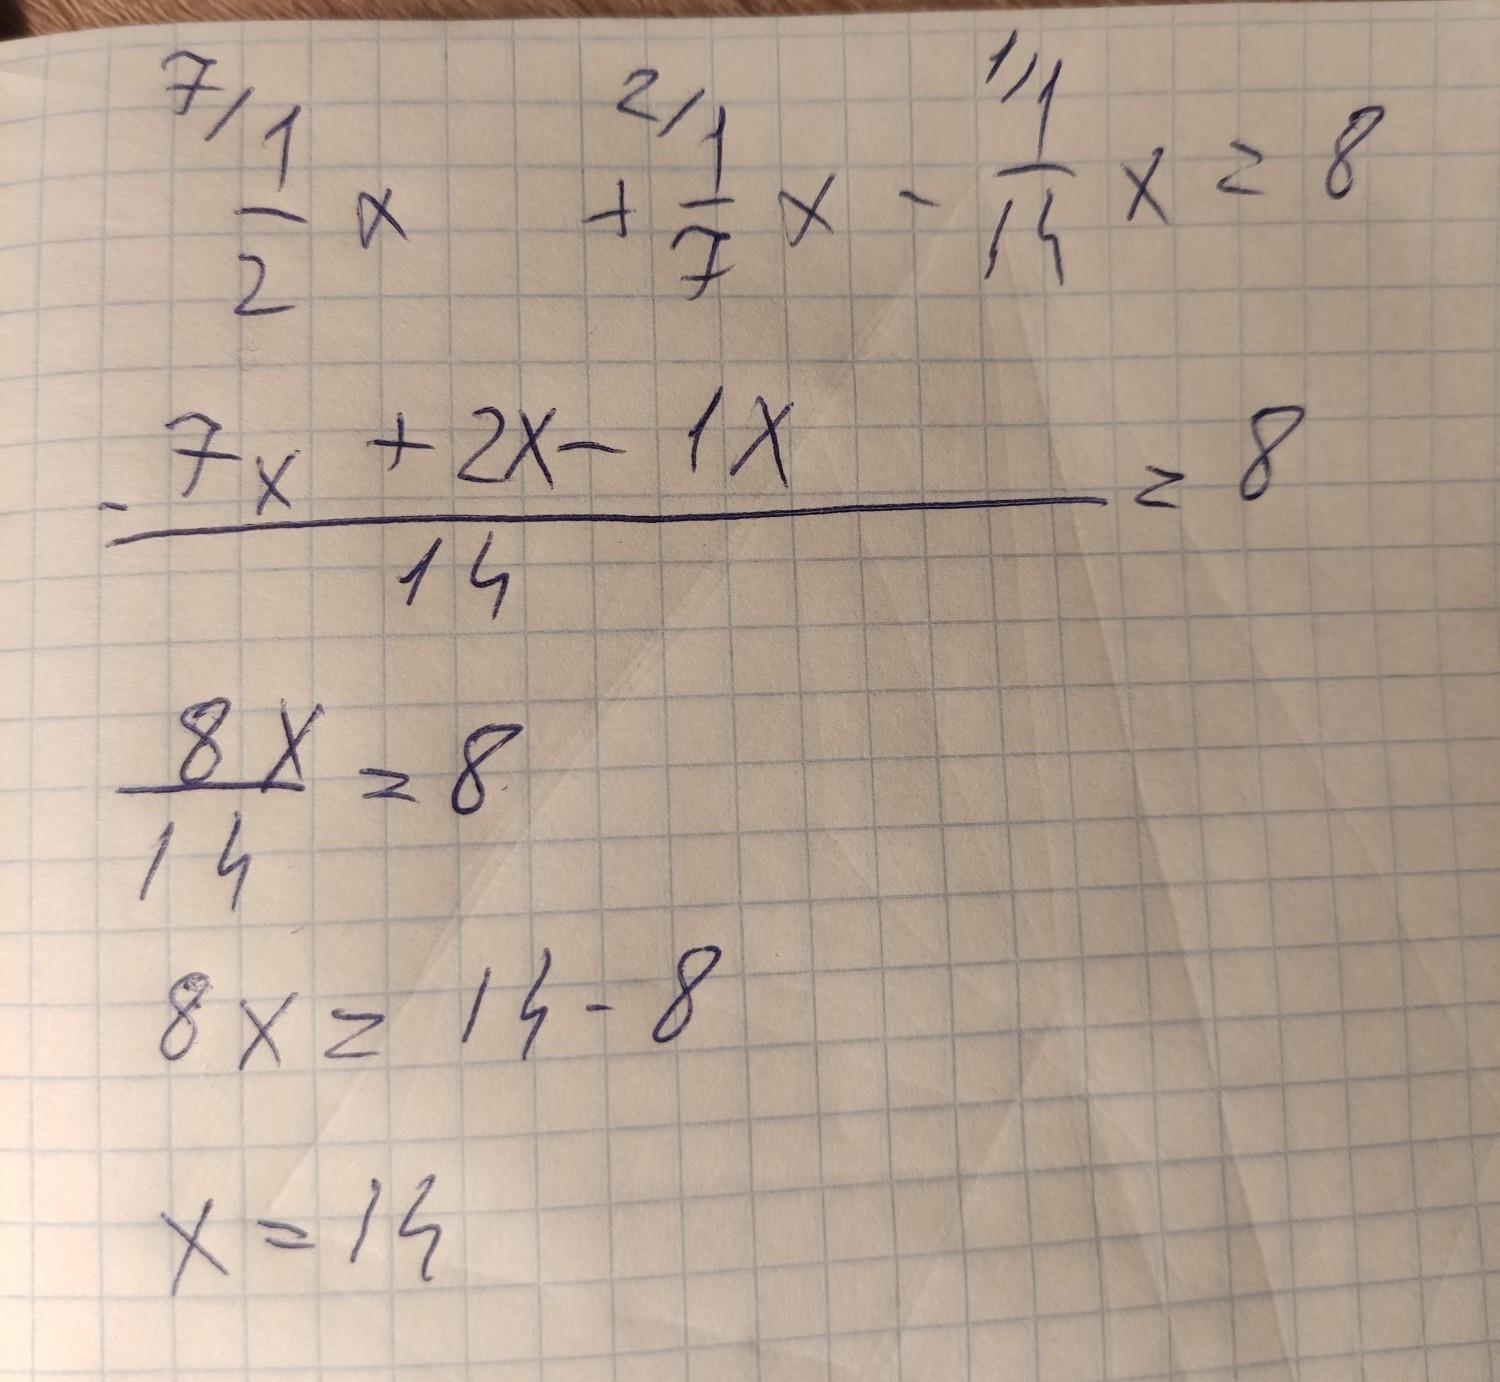 7/ 1/2 x + 2/ 1/7 x - 1/ 1/14 x = 8
- 7x + 2x - 1x / 14 = 8
8x / 14 = 8
8x = 14 - 8
x = 14